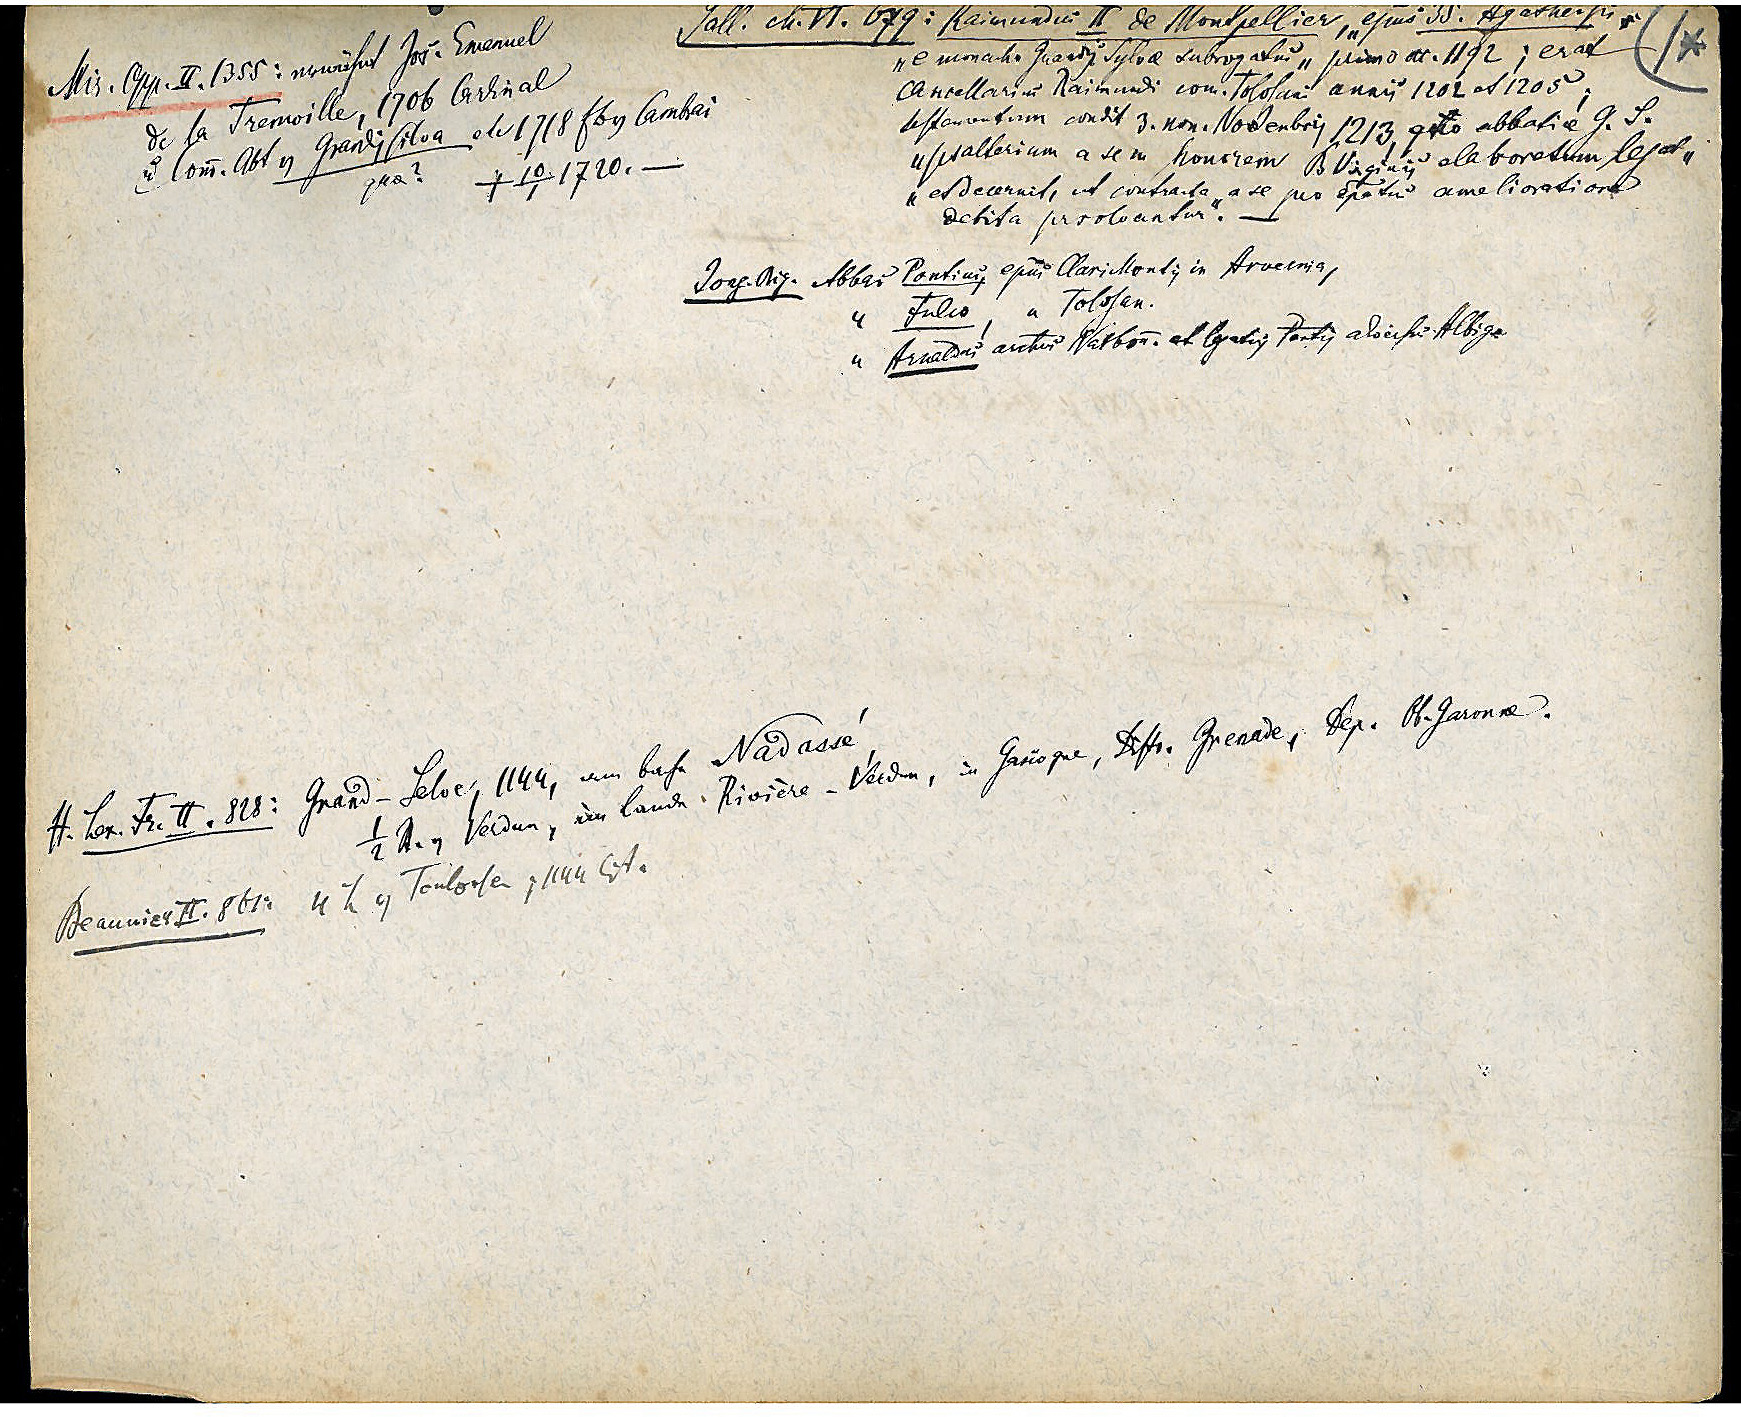 Mir. Opp. II. 1355: erwähnt Jos. Emanuel
de la Tremoille, 1706 Cardinal
u Com̄. Abt v Grandisilva etc 1718 Ebv Cambrai
qua? † 10/1 1720. —
Gall. ch. VI. 679: Raimundus II de Montpellier, „epūs 35. Agathensis"
„e monacho Grandis Sylvæ subrogatus„ primo a. 1192; erat
Cancellarius Raimundi com. Tolosani annis 1202 et 1205;
testamentum condit 3. non. Novembris 1213, quo abbatiæ G. S.
„psalterium a se in honorem B Virginis elaboratum legat„
„et decernit, ut contracta a se pro epatus amelioratione
debita persolvantur". —
Jong. Abbas Pontius, epūs Clarimontis in Arvernia,
" Fulco, " Tolosan.
" Arnaldus archiepus Narbon̄. et legatus adversus Albig.
H. Lex. Fr. II. 828: Grand-Selve, 1144, am bache Nadassé
1/2 St. v Verdun, im lande Rivière-Verdun, in Gascogne, Distr. Grenade, Dep. Ob. Garonne.
Beaunier II. 861: 4 L v Toulouse, 1144 Cist.